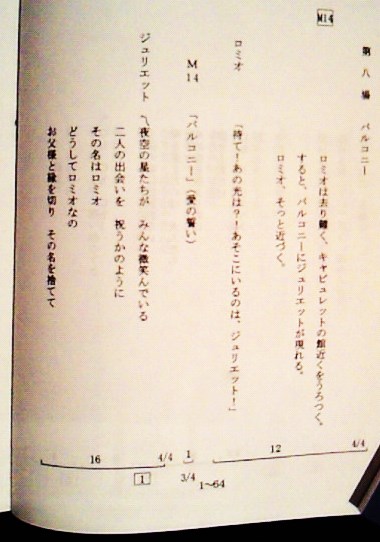 M14
第八場　バルコニー
ロミオは去り難く、キャピュレットの館近くをうろつく。
すると、バルコニーにジュリエットが現れる。
ロミオ、そっと近づく。
ロミオ　「待て！あの光は？！あそこにいるのは、ジュリエット！」
M14　「バルコニー」（愛の誓い）
ジュリエット　〽夜空の星たちが　みんな微笑んでいる
二人の出会いを　祝うかのように
その名はロミオ
どうしてロミオなの
お父様と縁を切り　その名を捨てて
4/4
12
1
3/4
4/4
16
1
1〜64